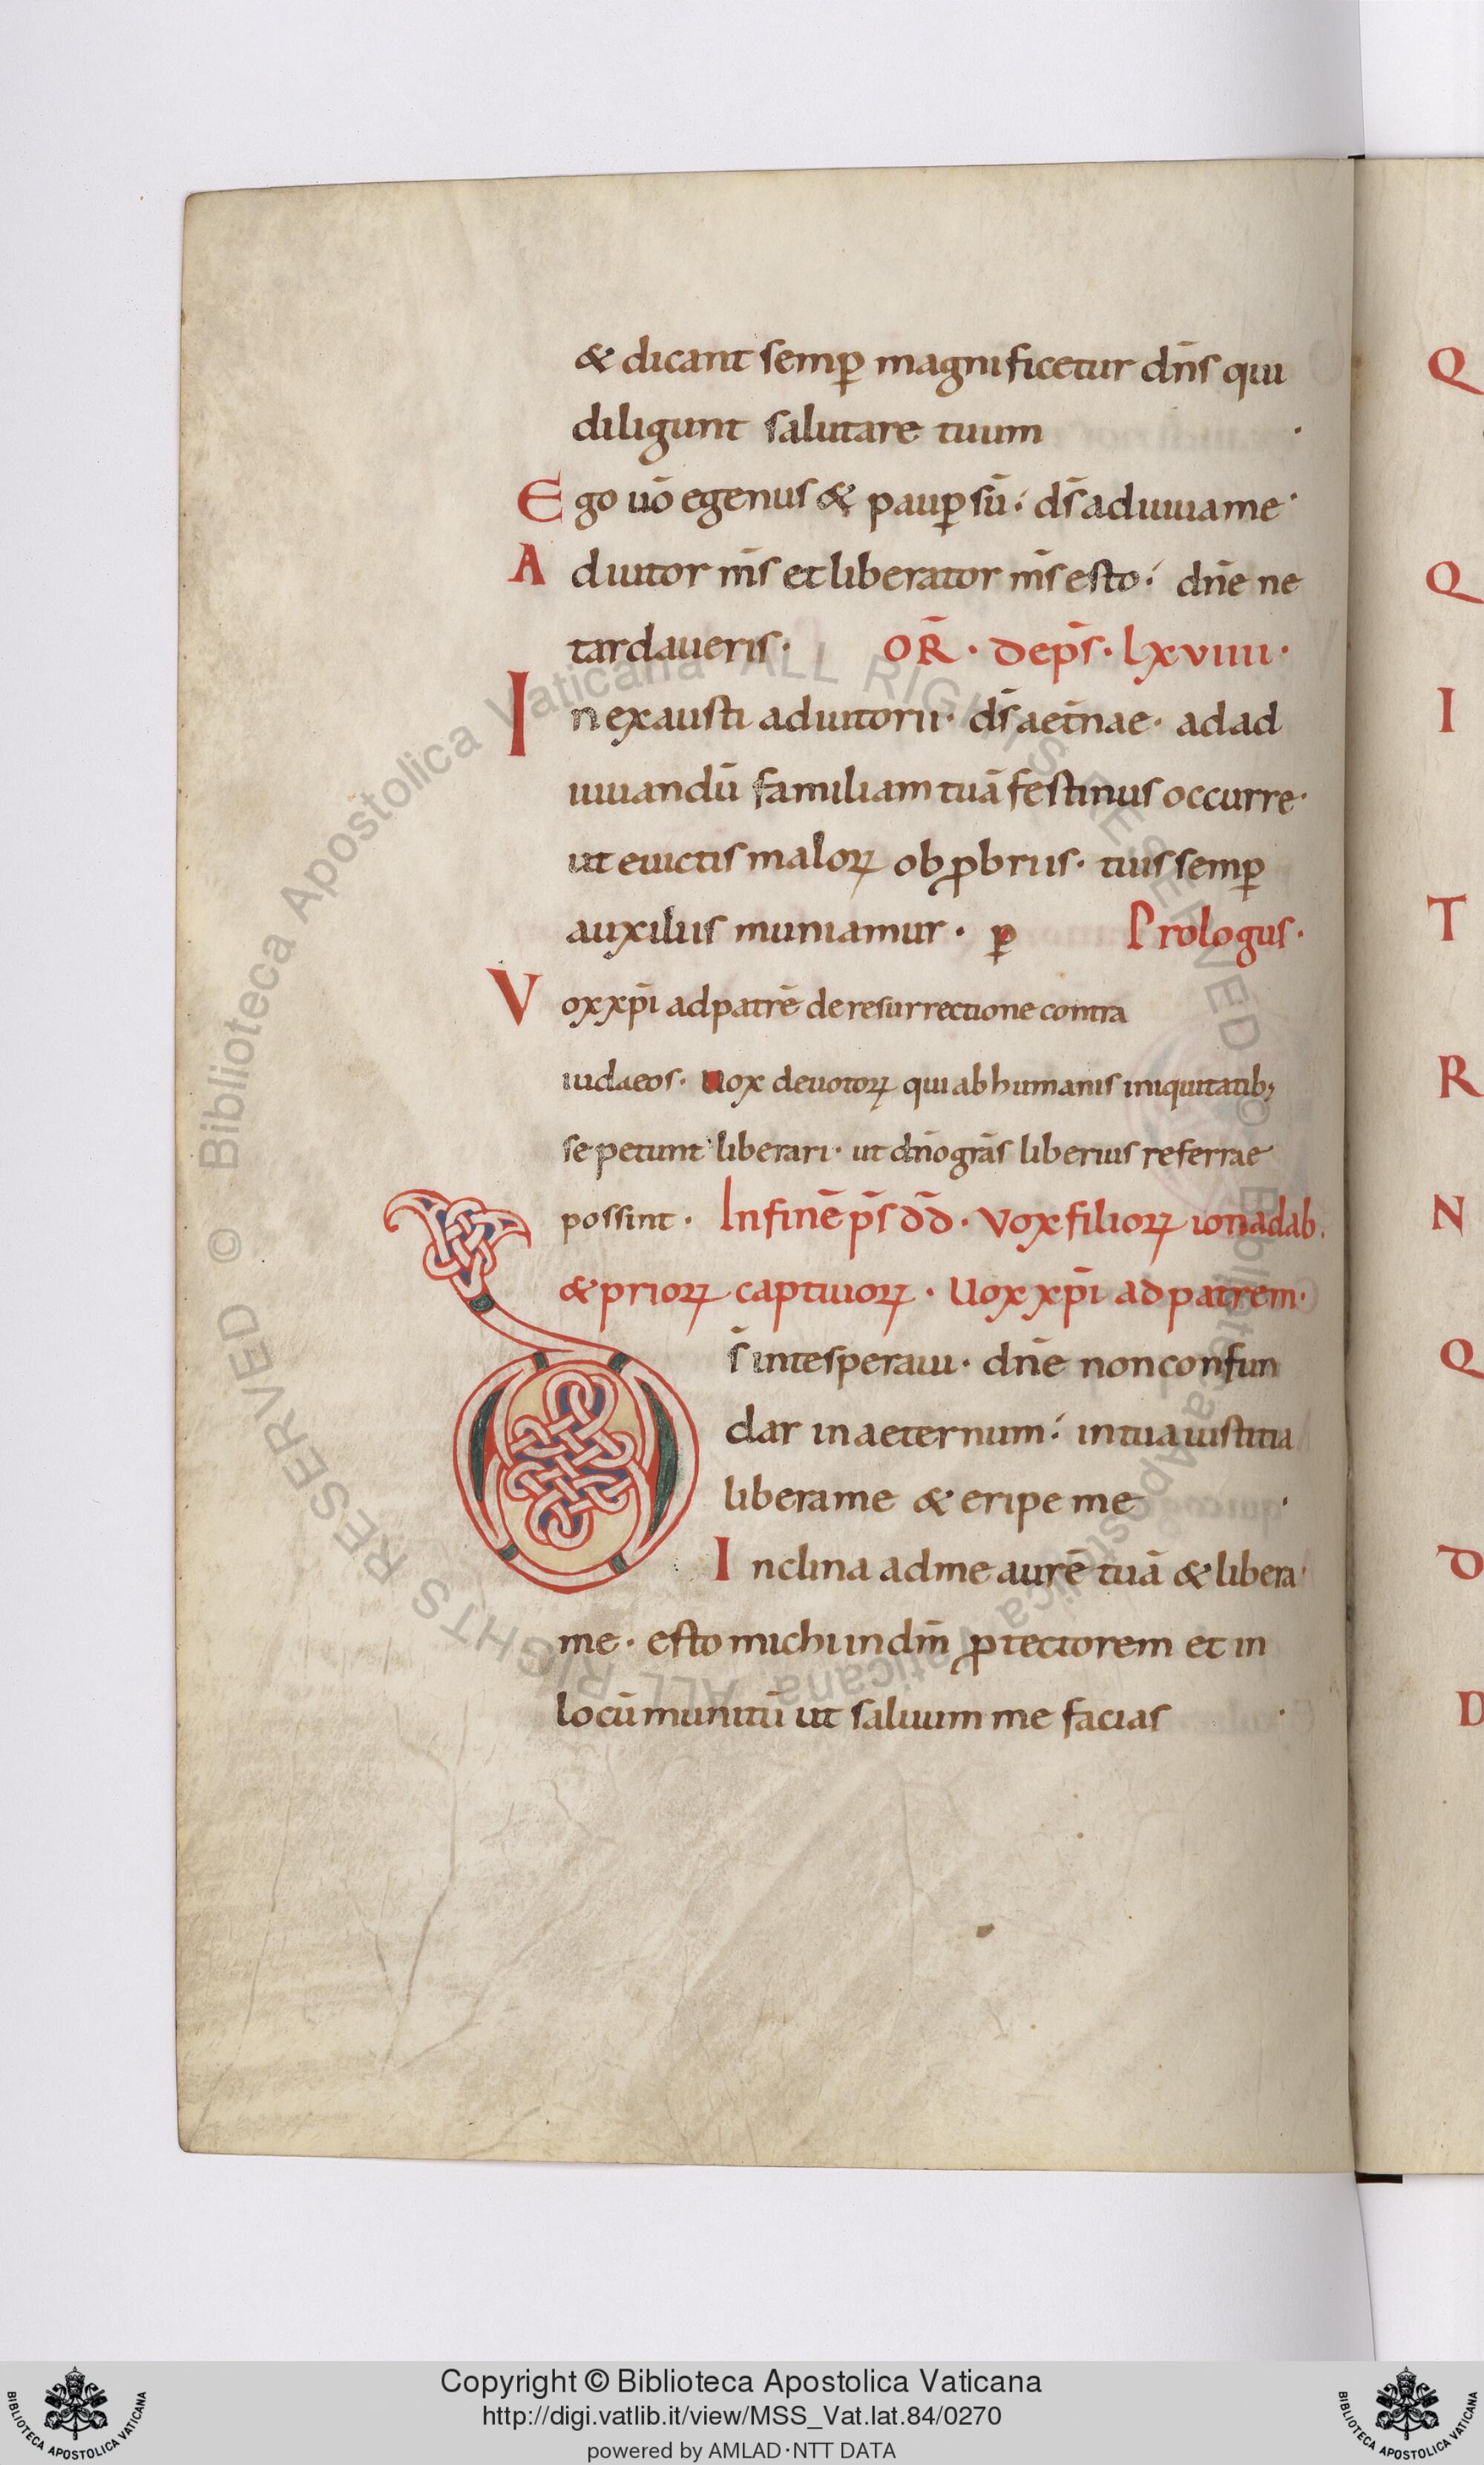 & dicant semꝑ magnificetur dn̄s qui
diligunt salutare tuum ·
Ego uō egenus & pauꝑ sū · ds̄ adiuuame ·
Adiutor m̄s et liberator m̄s esto · dn̄e ne
tardaueris · OR̄ · De ps̄ · lxviiii ·
Inexausti adiutorii · ds̄ aet̄nae · ad ad
iuuandū familiam tuā festinus occurre ·
ut euictis maloꝝ obꝓbriis · tuis semꝑ
auxiliis muniamur · ꝑ Prologus ·
Vox xp̄i ad patrē de resurrectione contra
iudaeos · Uox deuotoꝝ qui ab humanis iniquitatib;
se petunt liberari · ut dn̄o grās liberius referrae
possint · In finē ps̄ dd̄ · Vox filioꝝ ionadab ·
& prioꝝ captiuoꝝ · Uox xp̄i ad patrem ·
Ds̄ in te speraui · dn̄e non confun
dar in aeternum · in tua iustitia
libera me & eripe me ·
Inclina ad me aurē tuā & libera
me · esto michi in dm̄ ꝓtectorem et in
locū munitū ut saluum me facias ·
Q
Q
I
T
R
N
Q
D
D
© Biblioteca Apostolica Vaticana ALL RIGHTS RESERVED © Biblioteca Apostolica Vaticana ALL RIGHTS RESERVED
Copyright © Biblioteca Apostolica Vaticana
http://digi.vatlib.it/view/MSS_Vat.lat.84/0270
powered by AMLAD·NTT DATA
BIBLIOTECA APOSTOLICA VATICANA
BIBLIOTECA APOSTOLICA VATICANA